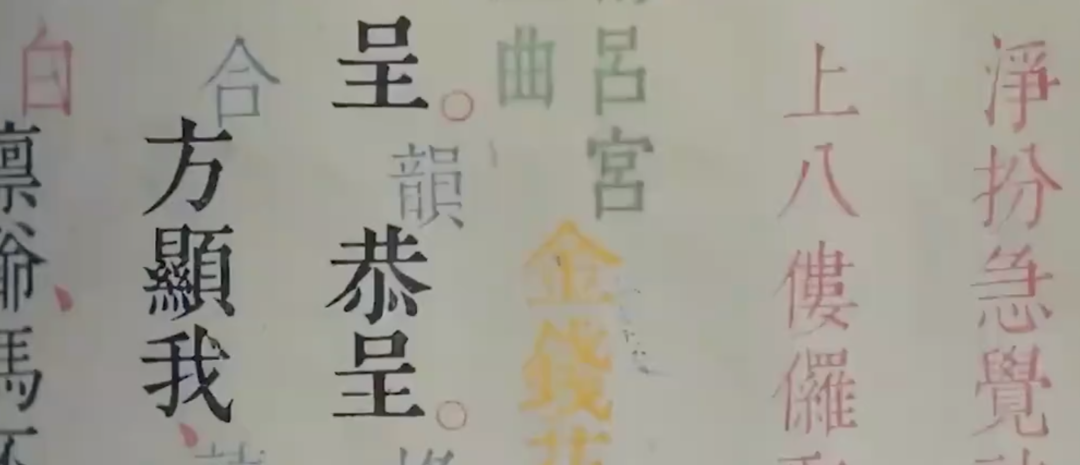 淨扮急覺
上八僂儸
呂宮
曲
金錢
呈。韻恭呈。
合方顯我、
白
稟爺、馬不